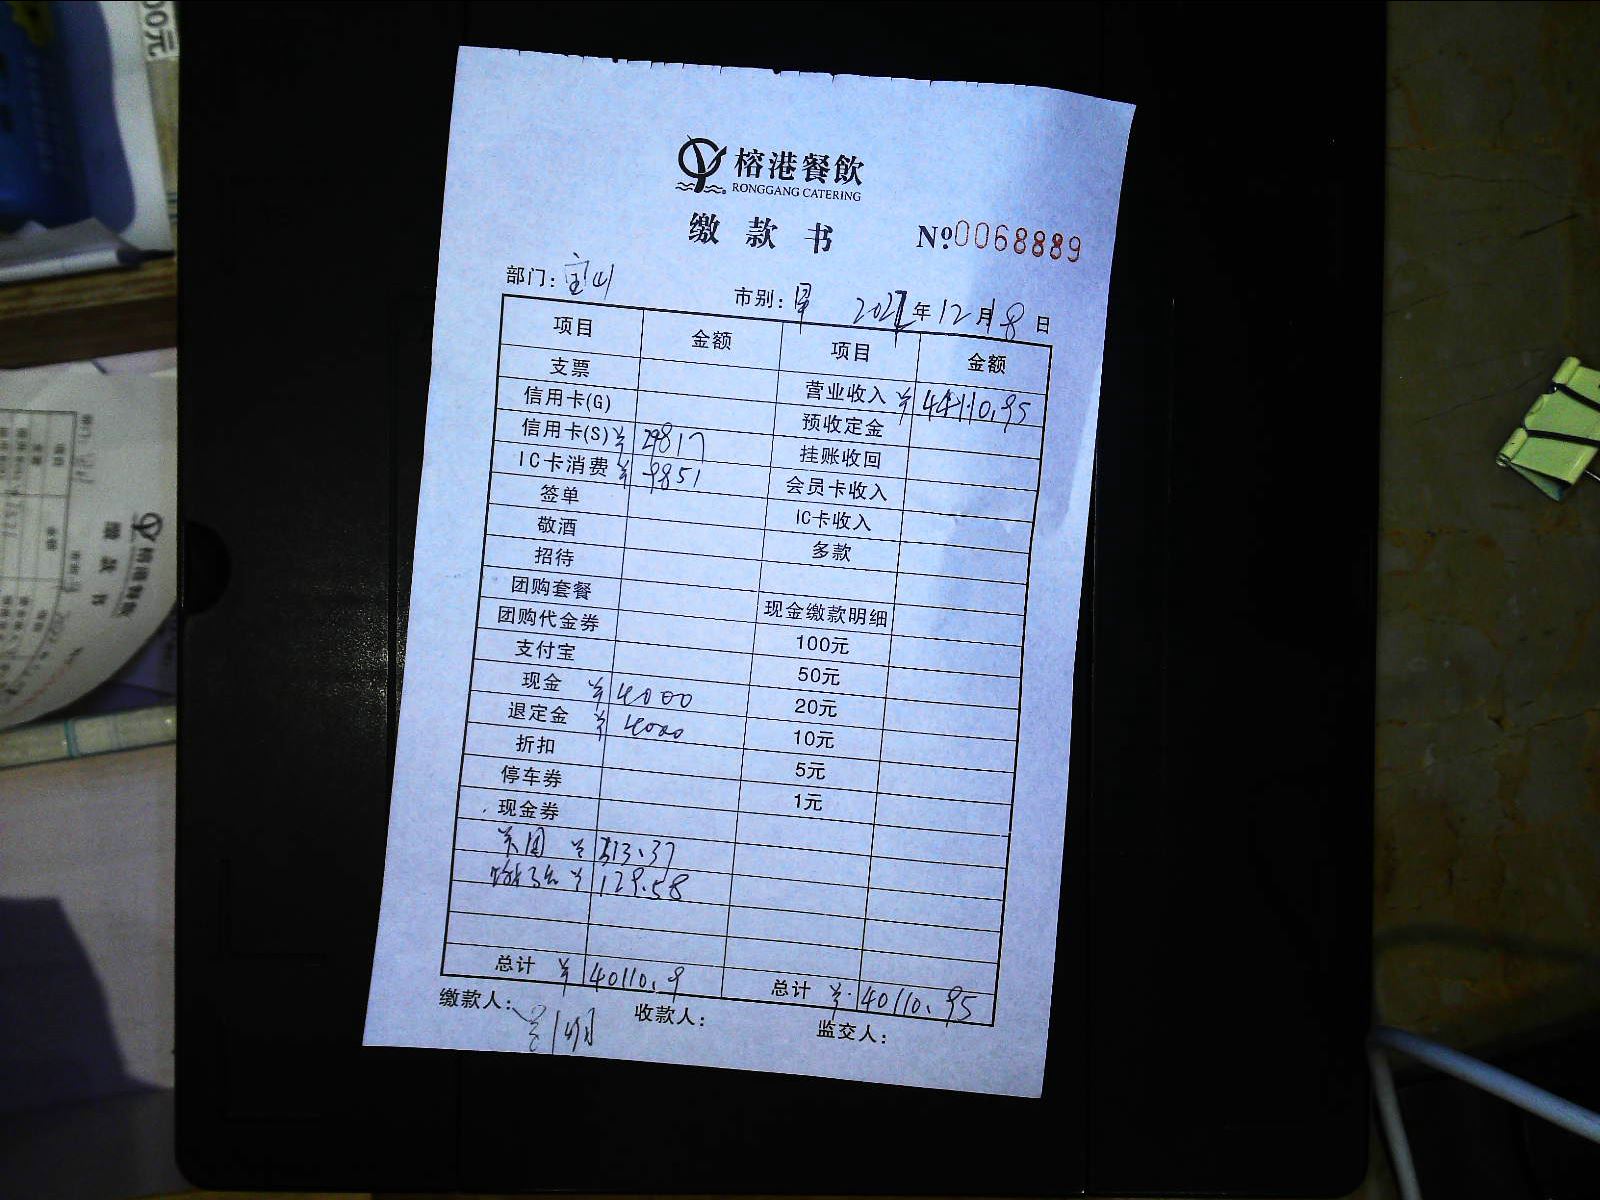 榕港餐飲
RONGGANG CATERING
缴款书 №0068889
部门: 宝山 市别: 早 2022年12月8日
项目 金额 项目 金额
支票 营业收入 ¥44110.95
信用卡(G) 预收定金
信用卡(S) ¥29817 挂账收回
IC卡消费 ¥9851 会员卡收入
签单 IC卡收入
敬酒 多款
招待
团购套餐 现金缴款明细
团购代金券 100元
支付宝 50元
现金 ¥4000 20元
退定金 ¥4000 10元
折扣 5元
停车券 1元
现金券
美团 ¥313.37
¥129.58
总计 ¥40110.9 总计 ¥40110.95
缴款人: 收款人: 监交人:
00元